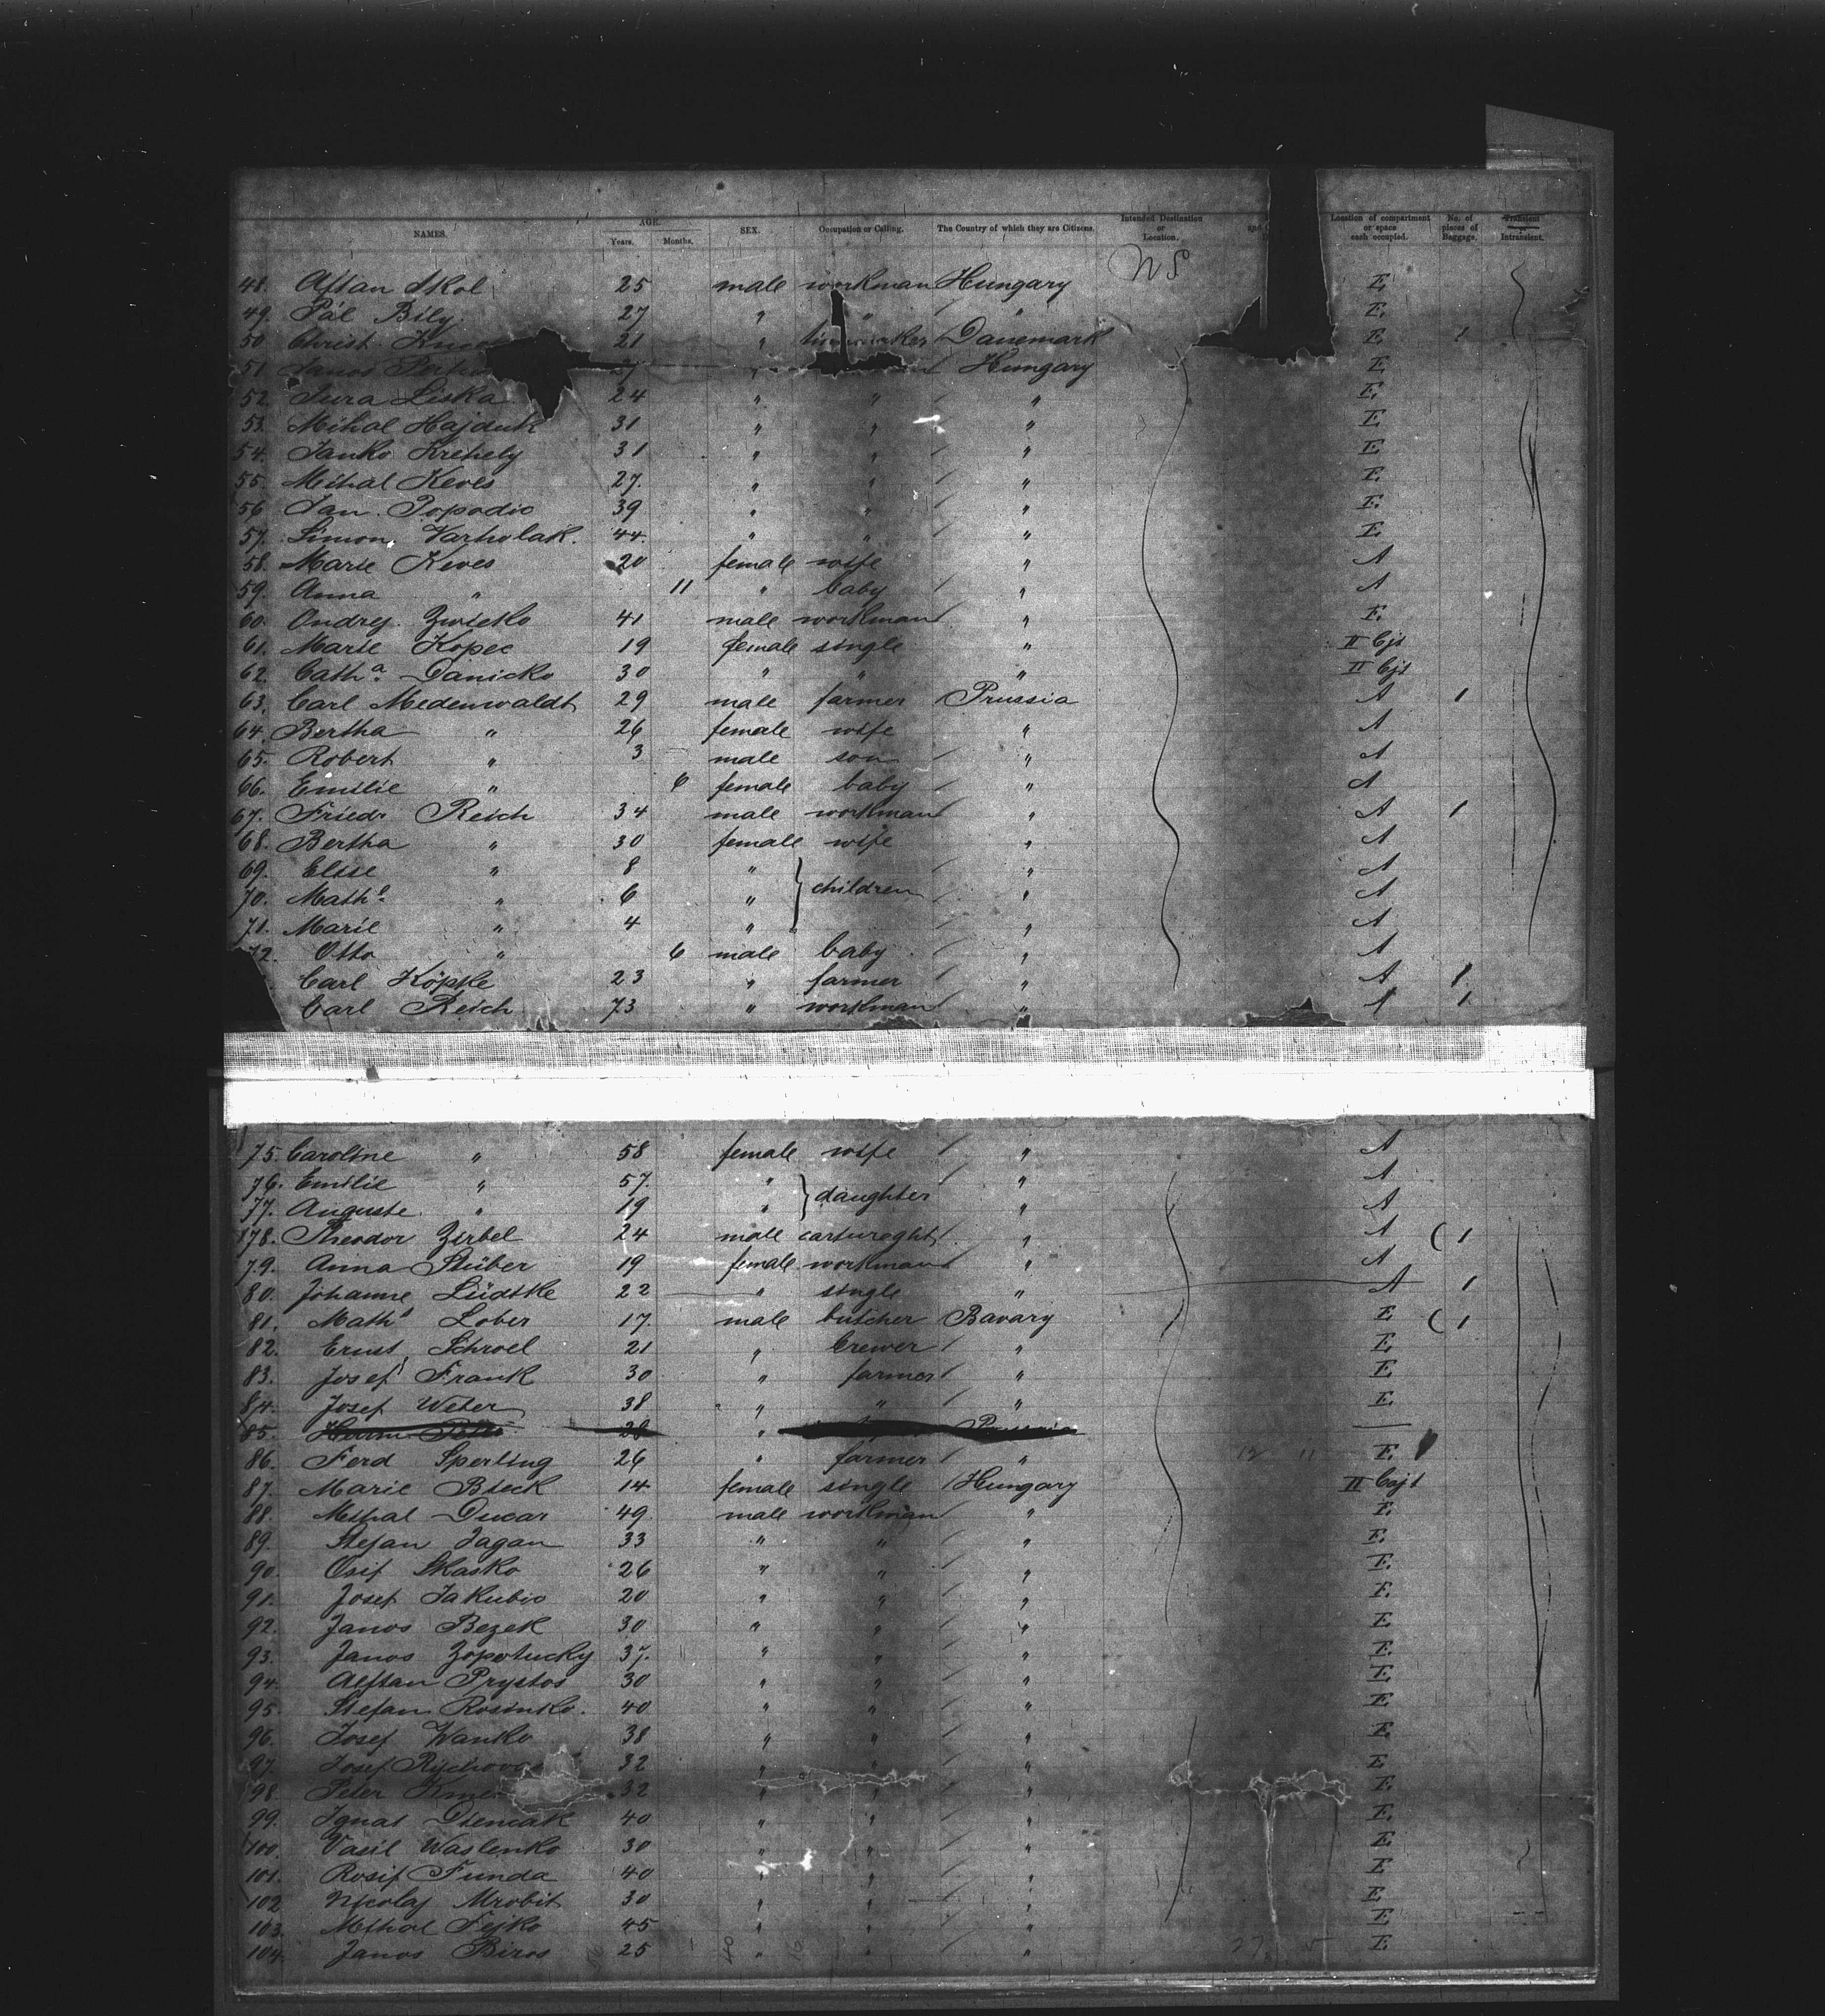 NAMES. AGE. Years. Months. SEX. Occupation or Calling. The Country of which they are Citizens. Intended Destination or Location. Location of compartment or space each occupied. No. of pieces of Baggage. Transient Intransient.
US
48. Aftan Skol 25 male workman Hungary E
49. Pál Bily 27 " " " E
50 Christ. 21 " Danemark E 1
51 Janos " Hungary E
52. Jura Liska 24 " " " E
53. Mihal Hajduk 31 " " " E
54. Janko Krehely 31 " " " E
55. Mihal Keves 27. " " " E
56 Jan. Popodic 39 " " " E
57. Simon Varholak. 44. " " " E
58. Marie Keves 20 female wife " A
59. Anna " 11 " baby " A
60. Ondrej 41 male workman " E
61. Marie Kopec 19 female single " II Cjt
62. Catha. Danicko 30 " " " II Cjt
63. Carl Medenwaldt 29 male farmer Prussia A 1
64. Bertha " 26 female wife " A
65. Robert " 3 male son " A
66. Emilie " 6 female baby " A
67. Friedr Reich 34 male workman " A 1
68. Bertha " 30 female wife " A
69. Elise " 8 " children " A
70. Mathe. " 6 " " A
71. Marie " 4 " " A
72. Otto " 6 male baby " A
Carl Köpke 23 " farmer " A 1
Carl Reich 73 " workman " A 1
75. Caroline " 58 female wife " A
76. Emilie " 57. " daughter " A
77. Auguste " 19 " " A
78. Theodor Zirbel 24 male cartwreght " A 1
79. Anna Stüber 19 female workman " A
80. Johanne Lüdtke 22 " single " A 1
81. Maths Lober 17. male butcher Bavary E 1
82. Ernst Schroel 21 " brewer " E
83. Josef Frank 30 " farmer " E
84. Josef Weber 38 " " " E
85. 28 " Prussia
86. Ferd Sperling 26 " farmer " 12 11 E
87. Marie Bieck 14 female single Hungary II Cajt
88. Mihal Ducar 49. male workman " E
89. Stefan Jagan 33 " " " E
90. Osif Skasko 26 " " " E
91. Josef Jakubic 20 " " " E
92. Janos Bezek 30 " " " E
93. Janos Zopotucky 37. " " " E
94. Alftan Prystos 30 " " " E
95. Stefan Rosinko. 40 " " " E
96. Josef Wanko 38 " " " E
97. Josef 32 " " " E
98. Peter 32 " " " E
99. Ignat Diencak 40 " " " E
100. Vasil Waslenko 30 " " " E
101. Rosif Funda 40 " " " E
102 Nicolaj Mrobit 30 " " " E
103. Mihal Fejko 45 " " " E
104. Janos Biros 25 " " " 27 5 E